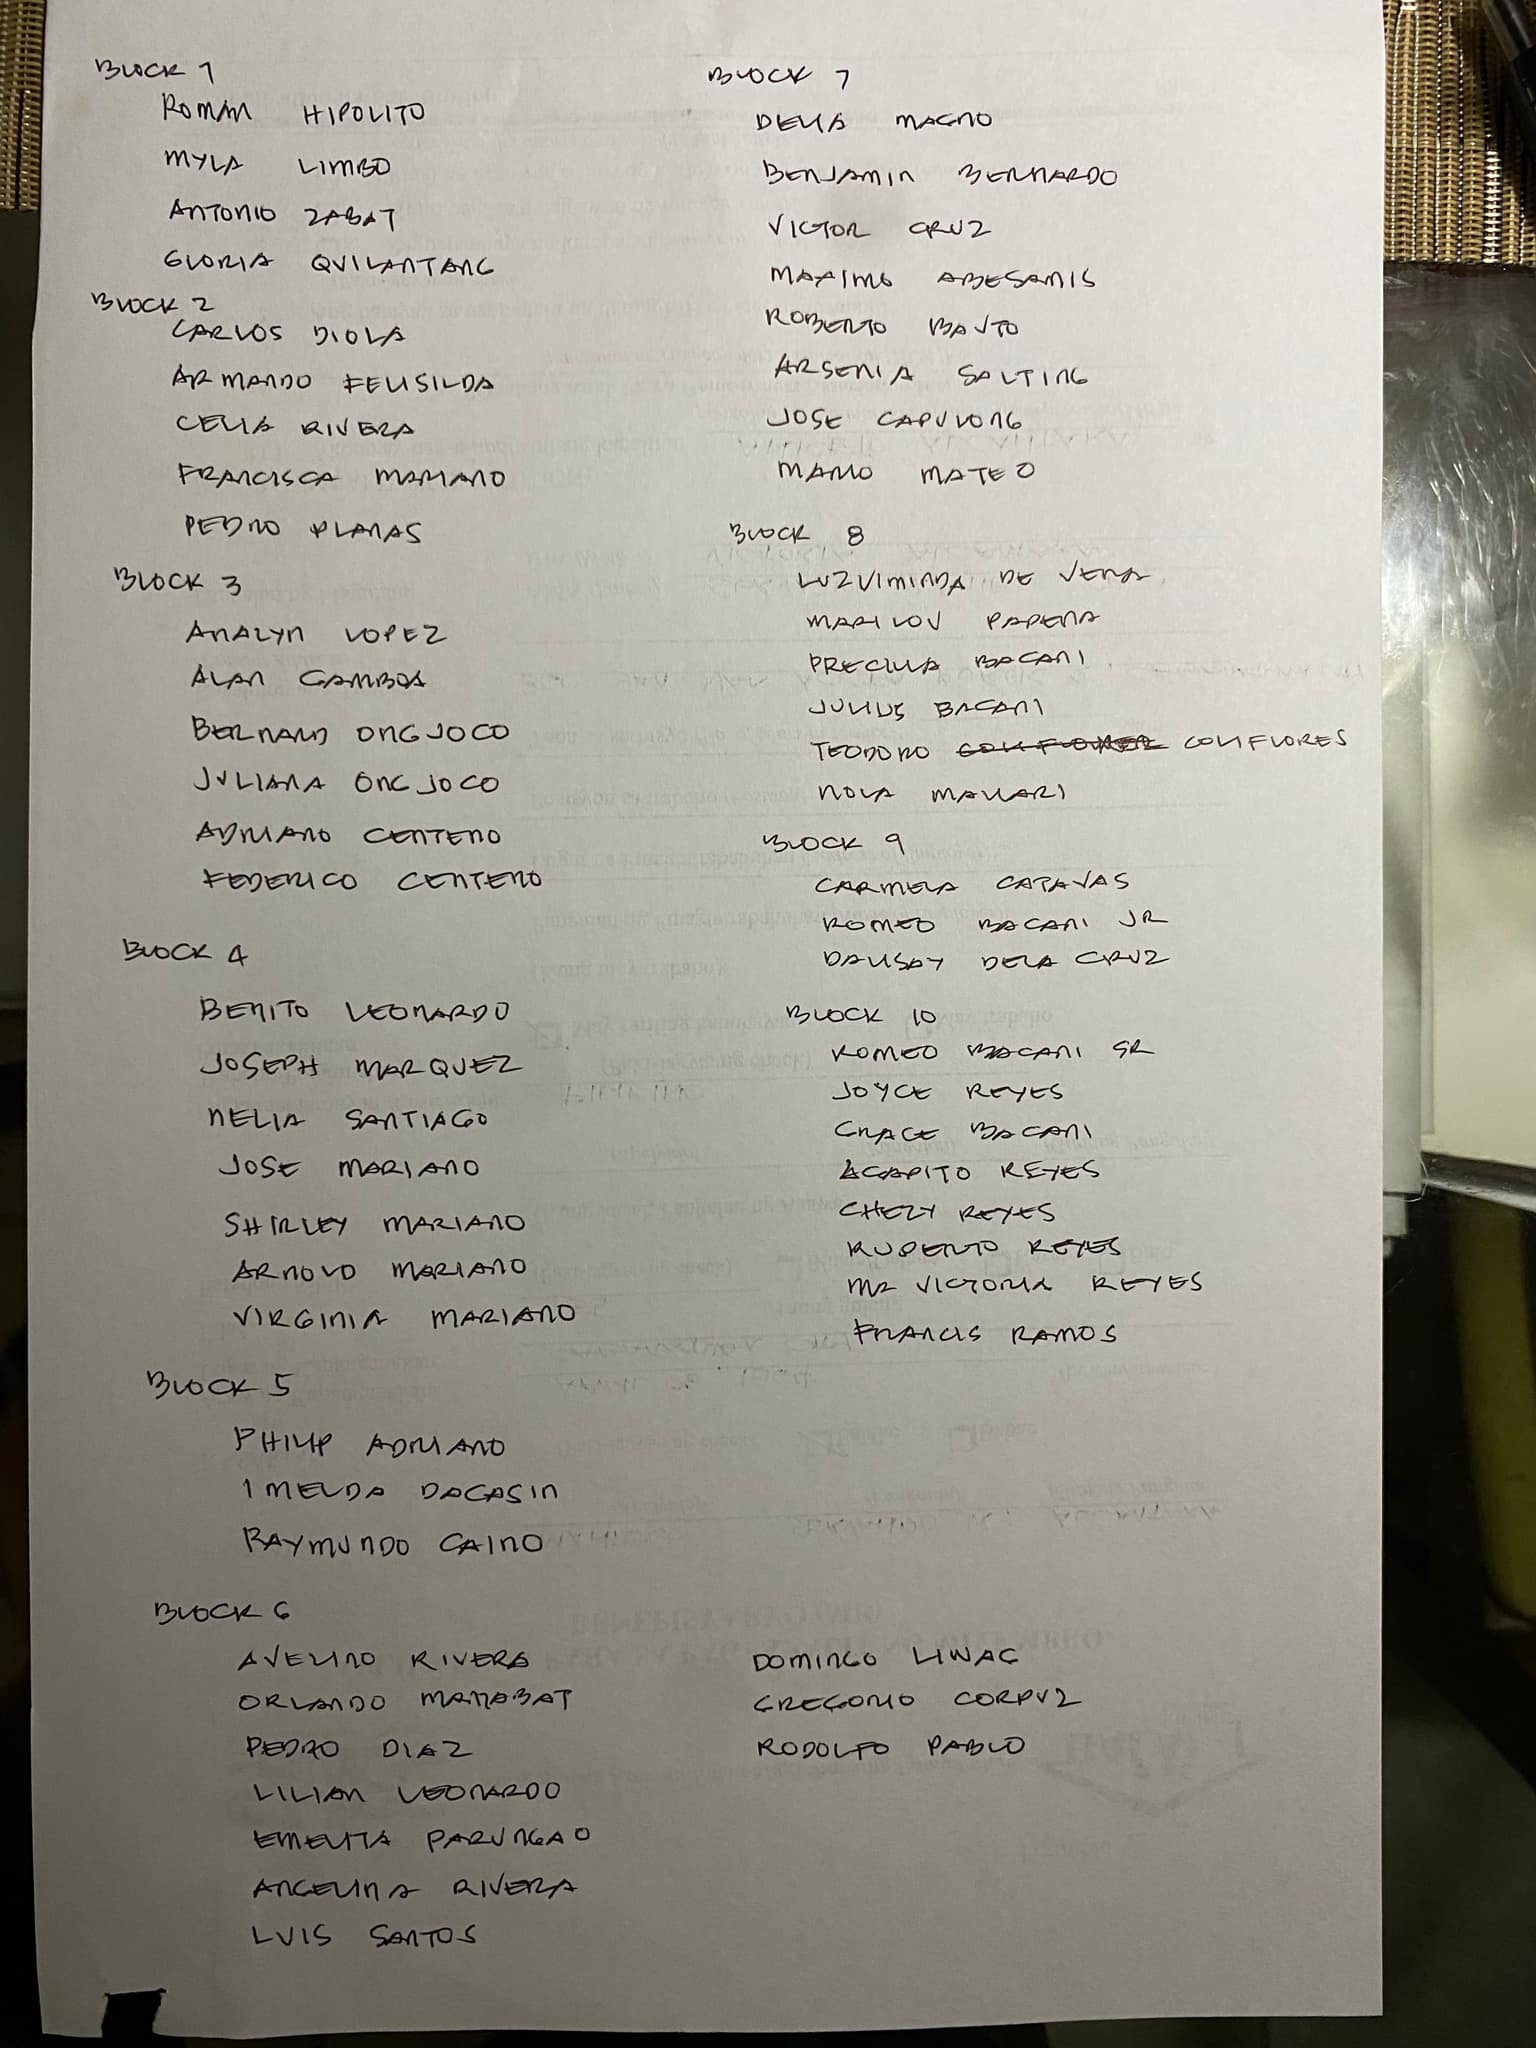 BLOCK 1
ROMAN HIPOLITO
MYLA LIMBO
ANTONIO ZABAT
GLORIA QUILANTANG
BLOCK 2
CARLOS DIOLA
ARMANDO FELISILDA
CELIA RIVERA
FRANCISCA MARIANO
PEDRO PLANAS
BLOCK 3
ANALYN LOPEZ
ALAN GAMBOA
BERNARD ONGJOCO
JULIANA ONGJOCO
ADRIANO CENTENO
FEDERICO CENTENO
BLOCK 4
BENITO LEONARDO
JOSEPH MARQUEZ
NELIA SANTIAGO
JOSE MARIANO
SHIRLEY MARIANO
ARNOLD MARIANO
VIRGINIA MARIANO
BLOCK 5
PHILIP ADRIANO
IMELDA DAGASIN
RAYMUNDO CAINO
BLOCK 6
AVELINO RIVERA
ORLANDO MANABAT
PEDRO DIAZ
LILIAN LEONARDO
EMELITA PARUNGAO
ANGELINA RIVERA
LUIS SANTOS
DOMINGO LIWAG
GREGORIO CORPUZ
RODOLFO PABLO
BLOCK 7
DELIA MAGNO
BENJAMIN BERNARDO
VICTOR CRUZ
MAXIMO ABESAMIS
ROBERTO BAUTO
ARSENIA SALTING
JOSE CAPULONG
MARIO MATEO
BLOCK 8
LUZVIMINDA DE VERA
MARILOU PAPENA
PRECILLA BACANI
JULIUS BACANI
TEODORO COLIFLORES
NOLA MALLARI
BLOCK 9
CARMELA CATAVAS
ROMEO BACANI JR
DALISAY DELA CRUZ
BLOCK 10
ROMEO BACANI SR
JOYCE REYES
GRACE BACANI
AGAPITO REYES
CHEZY REYES
RUPERTO REYES
MA VICTORIA REYES
FRANCIS RAMOS